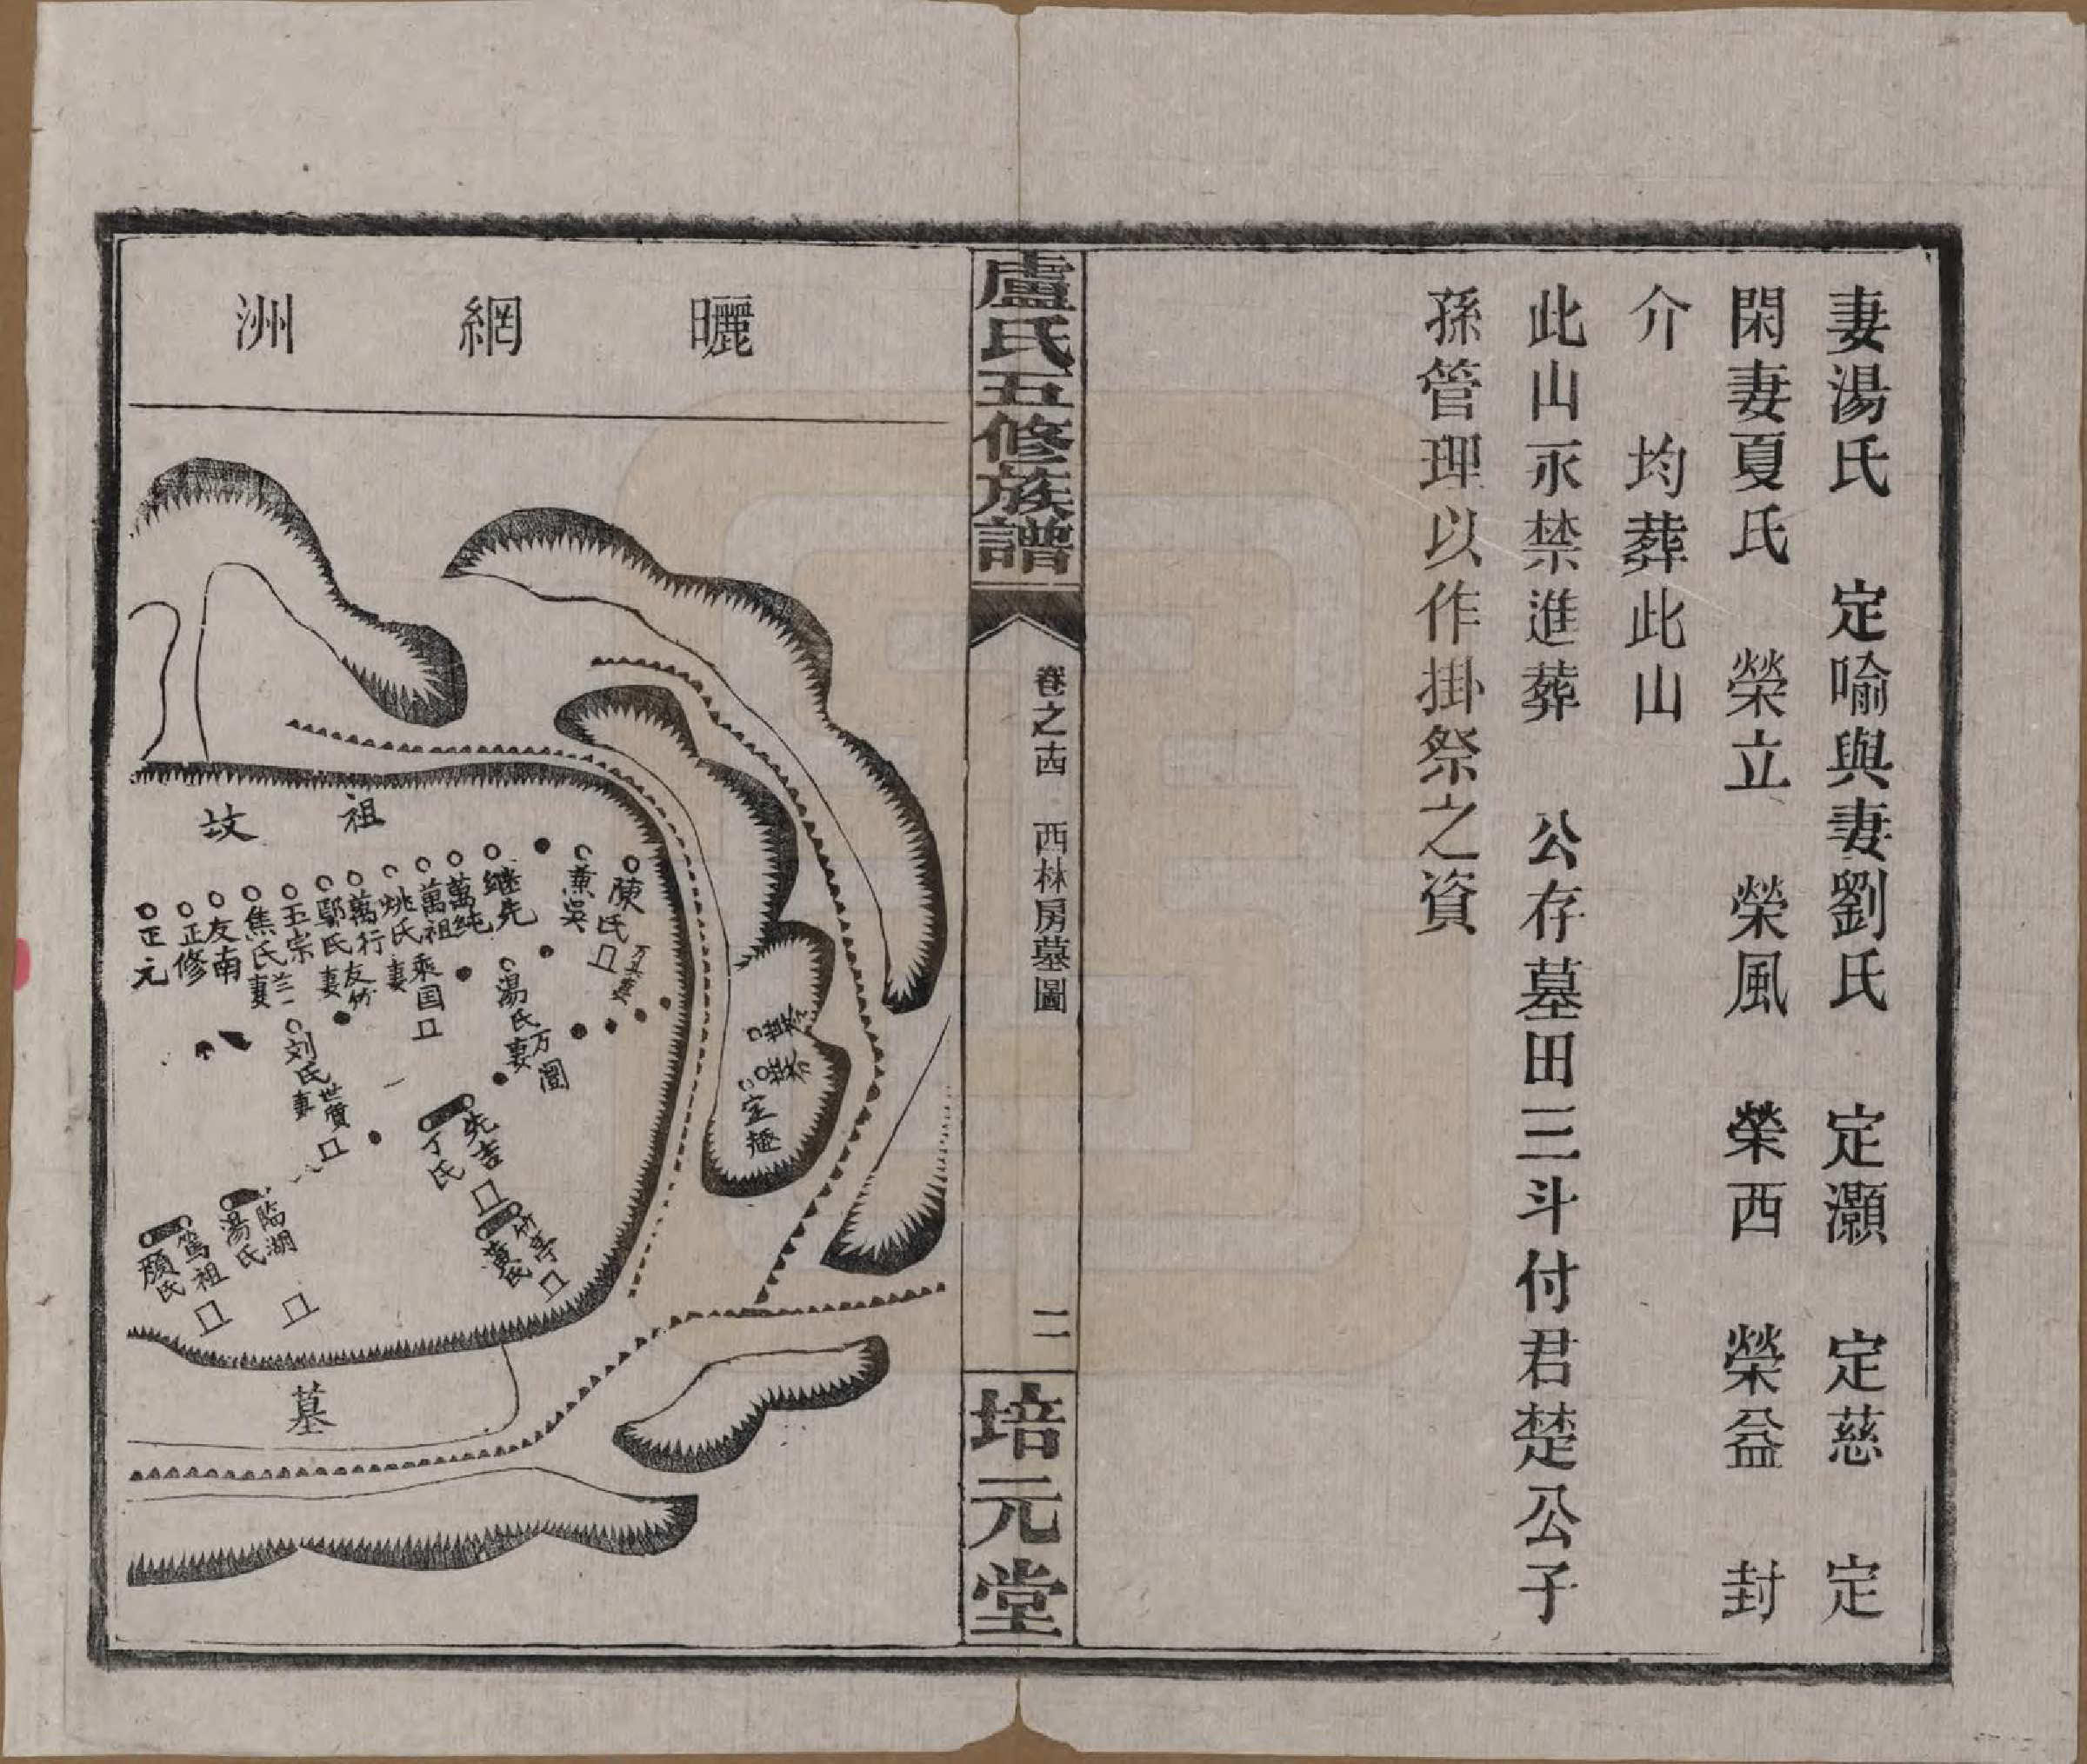 妻湯氏 定喻與妻劉氏 定灝 定慈 定
閑妻夏氏 榮立 榮風 榮西 榮益 封
介 均葬此山
此山永禁進葬 公存墓田三斗付君楚公子
孫管理以作掛祭之資
盧氏五修族譜
卷之十四 西林房墓圖
二
培元堂
曬網洲
祖坟
陳氏
萬純
继先
萬祖
乘国
姚氏妻
萬行
友竹
鄢氏妻
五宗
焦氏妻
友南
正修
正元
湯氏妻
万圖
刘氏妻
世賢
先吉
丁氏
竹亭
黃氏
临湖
湯氏
篤祖
顏氏
定極
墓